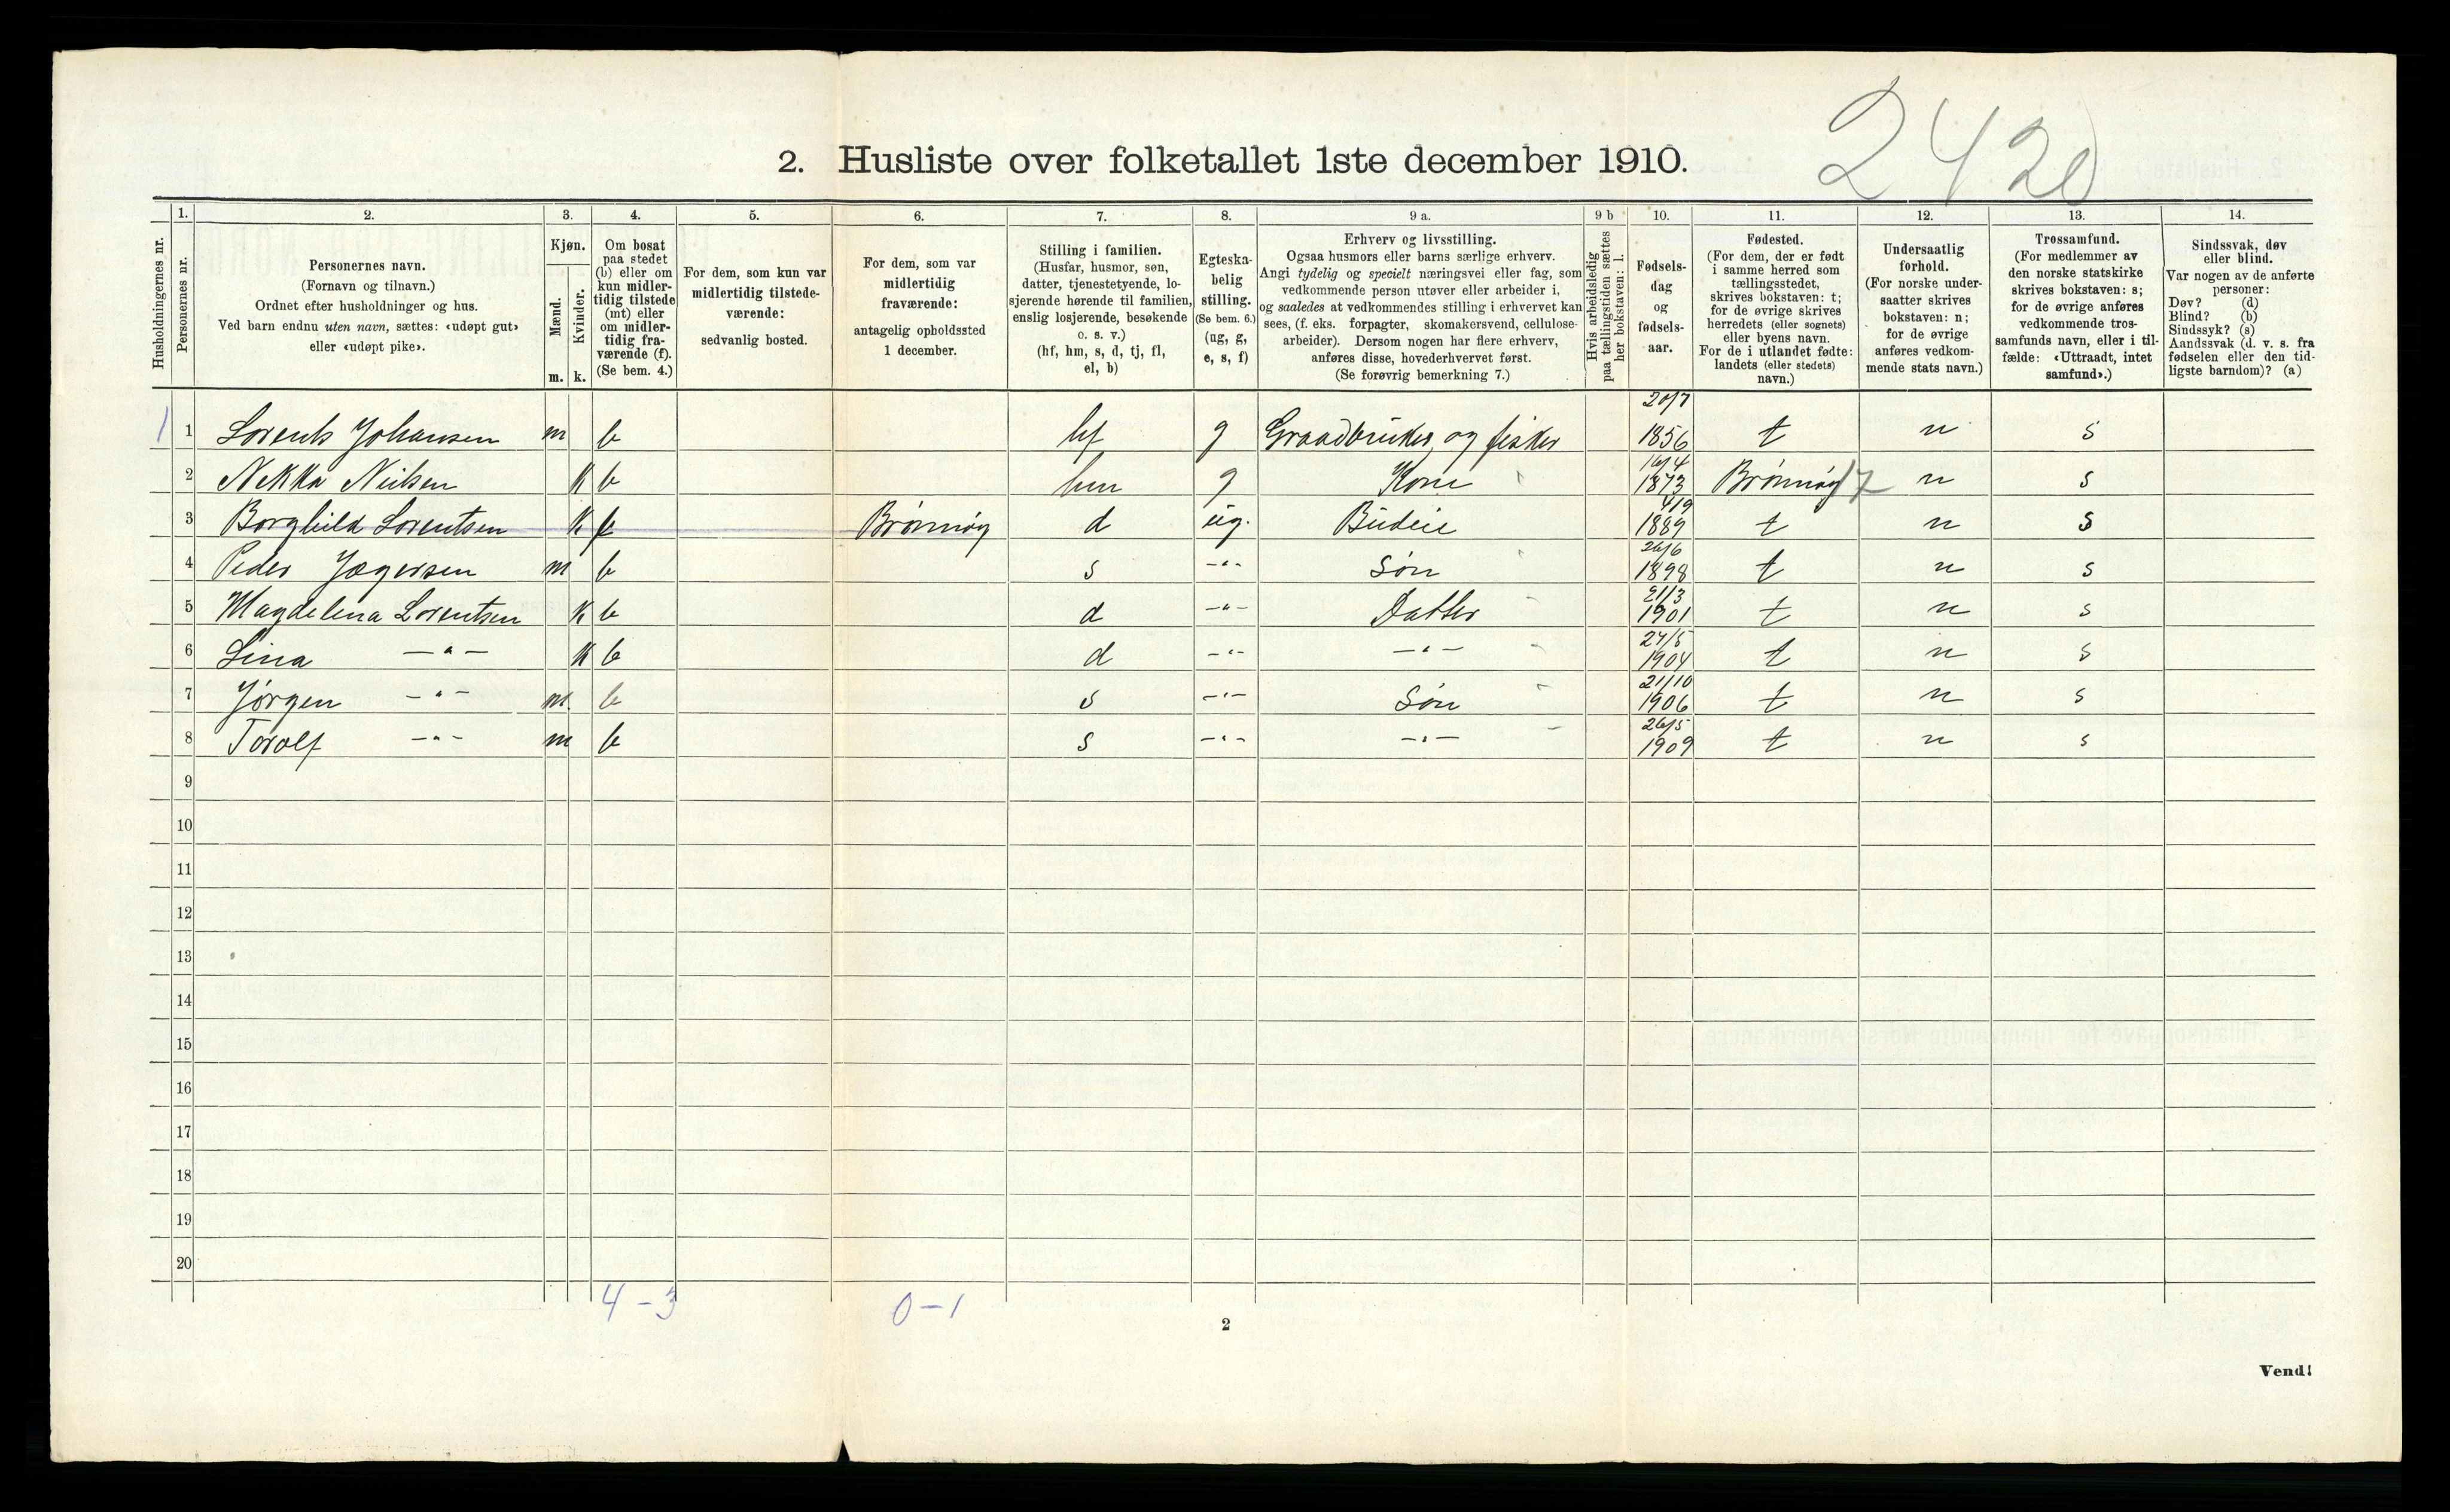 2420
2. Husliste over folketallet 1ste december 1910.
Husholdningernes nr.
1.
Personernes nr.
2.
Personernes navn.
(Fornavn og tilnavn.)
Ordnet efter husholdninger og hus.
Ved barn endnu uten navn, sættes: «udøpt gut»
eller «udøpt pike».
3.
Kjøn.
Mænd.
Kvinder.
m. k.
4.
Om bosat
paa stedet
(b) eller om
kun midler-
tidig tilstede
(mt) eller
om midler-
tidig fra-
værende (f).
(Se bem. 4.)
5.
For dem, som kun var
midlertidig tilstede-
værende:
sedvanlig bosted.
6.
For dem, som var
midlertidig
fraværende:
antagelig opholdssted
1 december.
7.
Stilling i familien.
(Husfar, husmor, søn,
datter, tjenestetyende, lo-
sjerende hørende til familien,
enslig losjerende, besøkende
o. s. v.)
(hf, hm, s, d, tj, fl,
el, b)
8.
Egteska-
belig
stilling.
(Se bem. 6.)
(ug, g,
e, s, f)
9 a.
Erhverv og livsstilling.
Ogsaa husmors eller barns særlige erhverv.
Angi tydelig og specielt næringsvei eller fag, som
vedkommende person utøver eller arbeider i,
og saaledes at vedkommendes stilling i erhvervet kan
sees, (f. eks. forpagter, skomakersvend, cellulose-
arbeider). Dersom nogen har flere erhverv,
anføres disse, hovederhvervet først.
(Se forøvrig bemerkning 7.)
9 b
Hvis arbeidsledig
paa tællingstiden sættes
her bokstaven: l.
10.
Fødsels-
dag
og
fødsels-
aar.
11.
Fødested.
(For dem, der er født
i samme herred som
tællingsstedet,
skrives bokstaven: t;
for de øvrige skrives
herredets (eller sognets)
eller byens navn.
For de i utlandet fødte:
landets (eller stedets)
navn.)
12.
Undersaatlig
forhold.
(For norske under-
saatter skrives
bokstaven: n;
for de øvrige
anføres vedkom-
mende stats navn.)
13.
Trossamfund.
(For medlemmer av
den norske statskirke
skrives bokstaven: s;
for de øvrige anføres
vedkommende tros-
samfunds navn, eller i til-
fælde: «Uttraadt, intet
samfund».)
14.
Sindssvak, døv
eller blind.
Var nogen av de anførte
personer:
Døv? (d)
Blind? (b)
Sindssyk? (s)
Aandssvak (d. v. s. fra
fødselen eller den tid-
ligste barndom)? (a)
1 1 Lorents Johansen m b hf g Graadbruker og fisker 20/7 1856 t n s
2 Nekka Nilsen K b hm g Kone 16/4 1873 Brønnøy 17 n s
3 Borghild Lorentsen K f Brønnøy d ug. Budeie 4/9 1889 t n s
4 Peder Jægersen m b s -"- Søn 26/6 1898 t n s
5 Magdelena Lorentsen K b d -"- Datter 21/3 1901 t n s
6 Lina -"- K b d -"- -"- 24/5 1904 t n s
7 Jørgen -"- m. b s -"- Søn 21/10 1906 t n s
8 Torolf -"- m b s -"- -"- 26/5 1909 t n s
9
10
11
12
13
14
15
16
17
18
19
20
4-3 0-1
2
Vend!